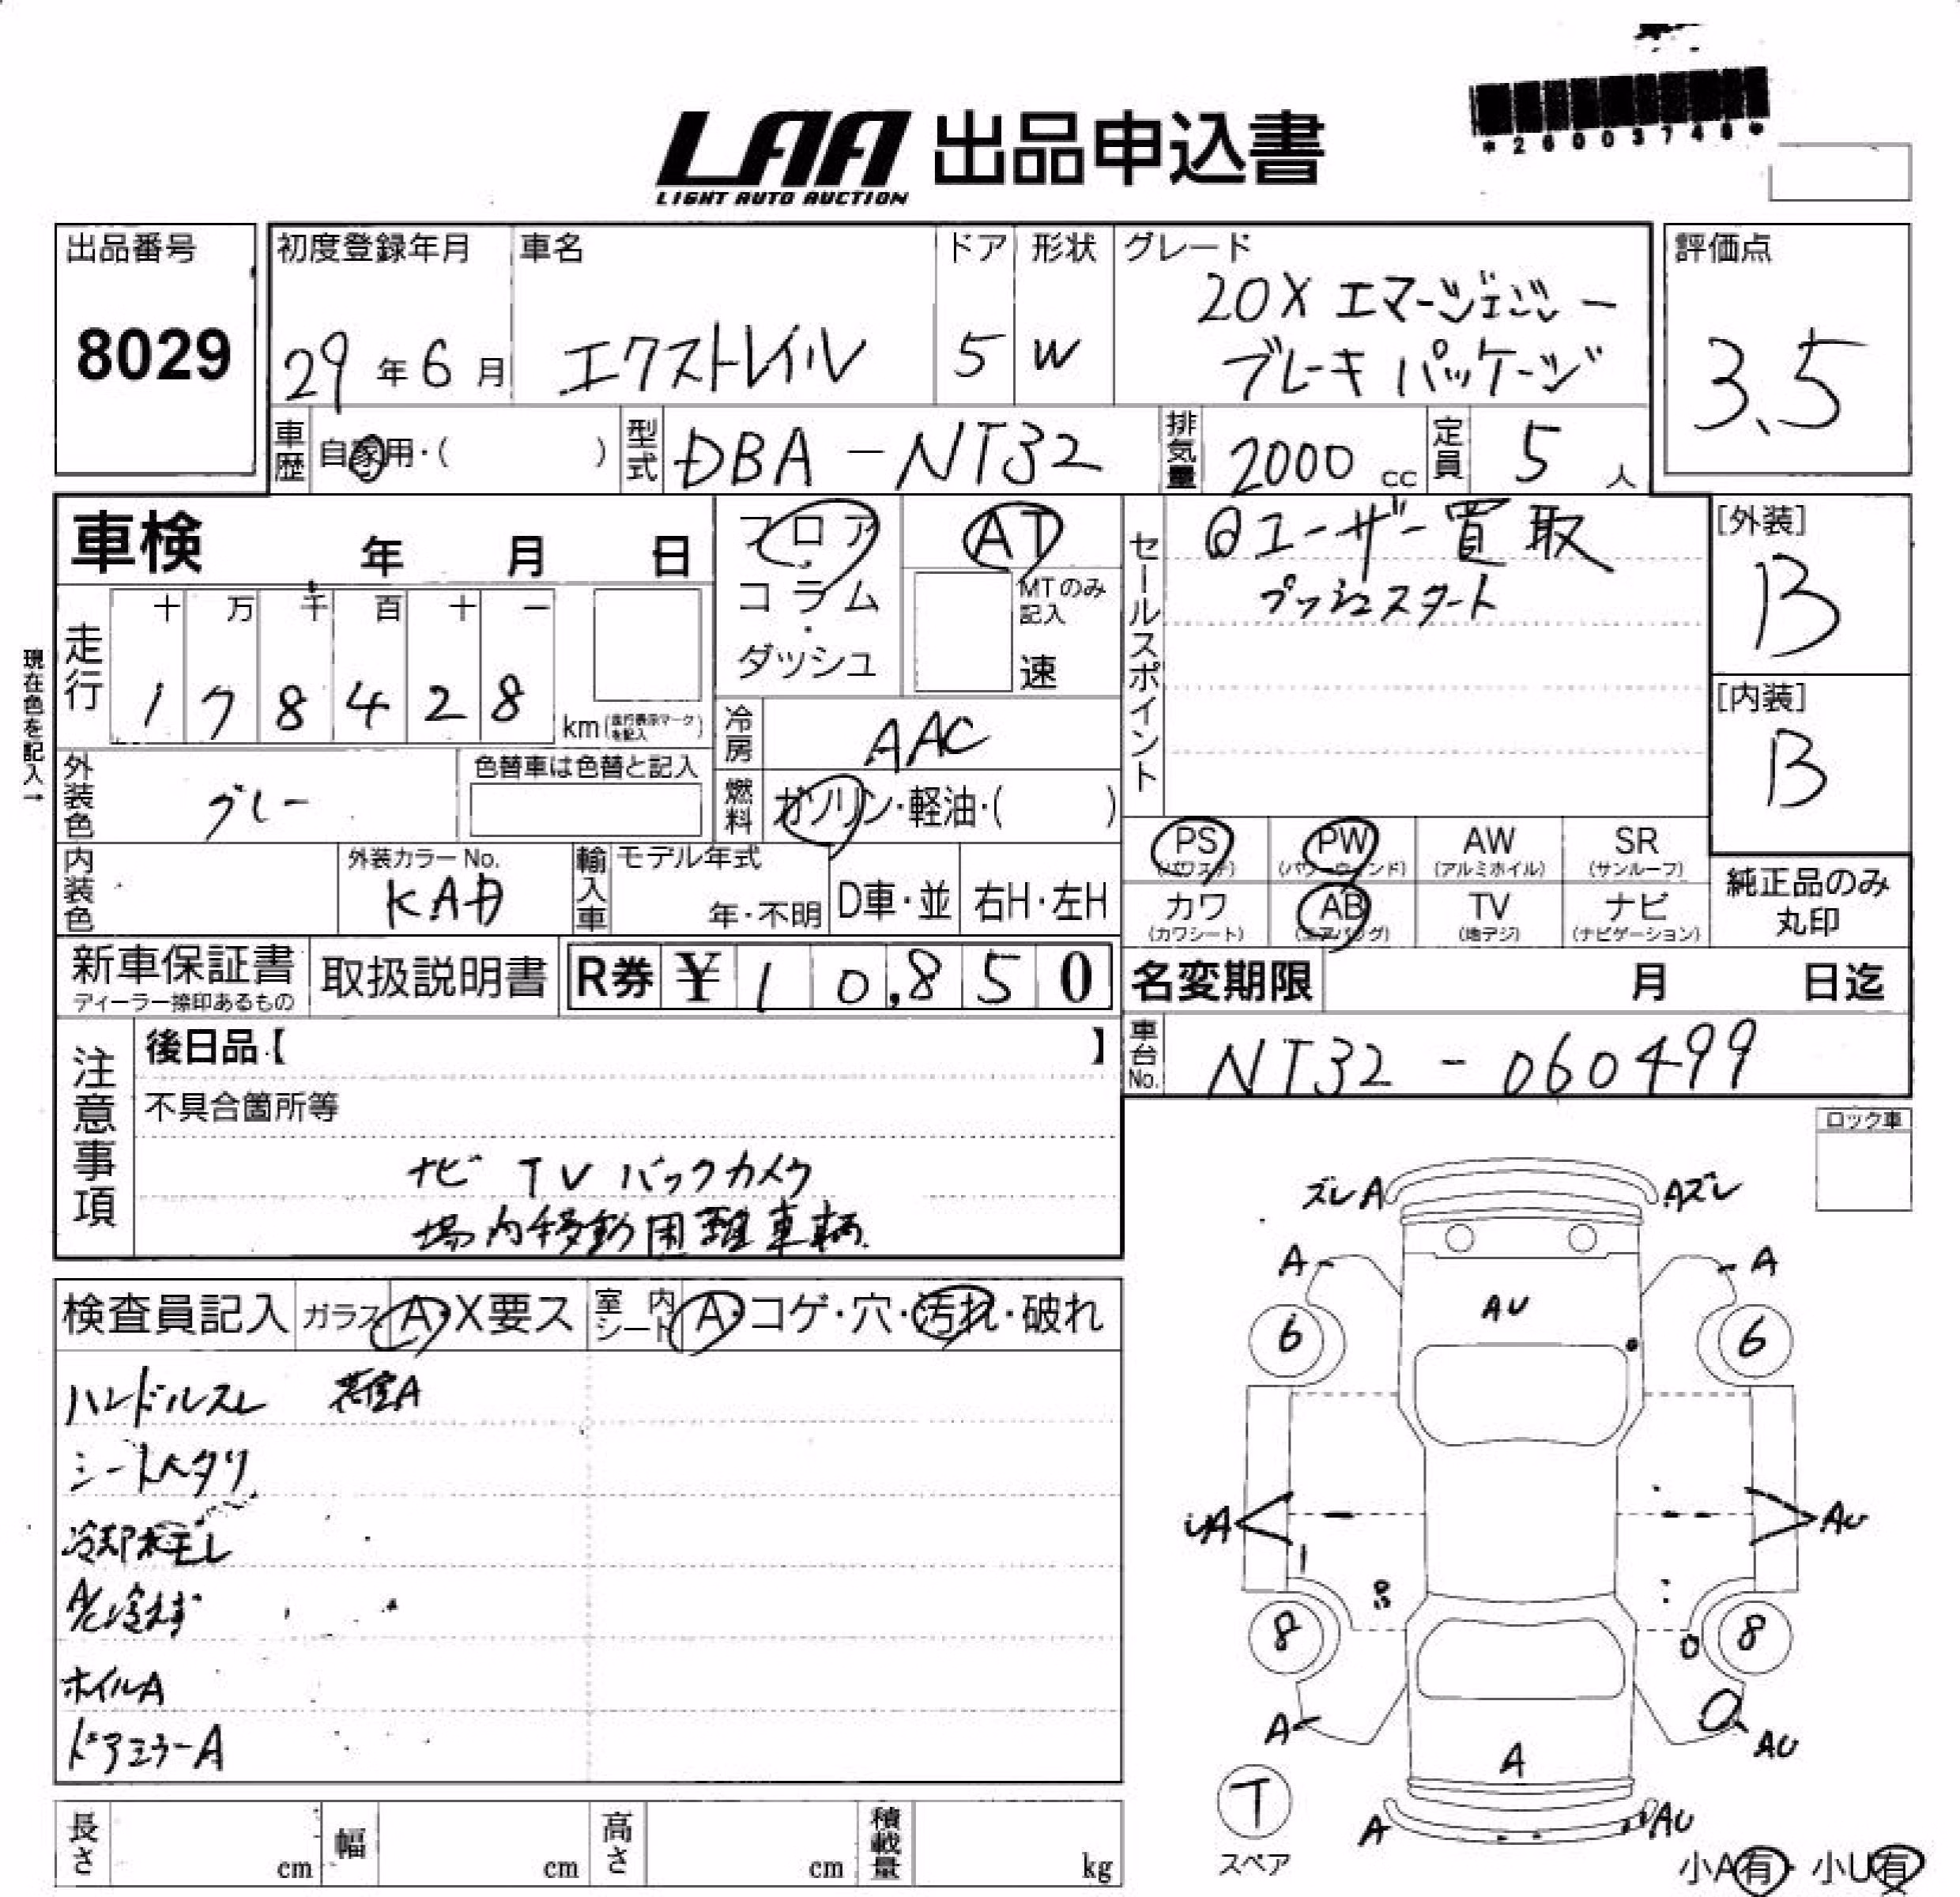 *26003748*
LAA 出品申込書
LIGHT AUTO AUCTION
出品番号
8029
初度登録年月
29年6月
車名
エクストレイル
ドア
5
形状
W
グレード
20X エマージェンシー
ブレーキパッケージ
評価点
3.5
車歴
自家用・( )
型式
DBA-NT32
排気量
2000 cc
定員
5 人
車検 年 月 日
フロア・コラム・ダッシュ
AT
MTのみ記入
速
走行
十 万 千 百 十 一
1 7 8 4 2 8
km(走行表示マークを記入)
現在色を記入→
外装色
グレー
色替車は色替と記入
冷房
AAC
燃料
ガソリン・軽油・( )
内装色
外装カラーNo.
KAD
輸入車
モデル年式
年・不明
D車・並
右H・左H
新車保証書
ディーラー捺印あるもの
取扱説明書
R券 ¥ 10,850
セールスポイント
@ユーザー買取
プッシュスタート
[外装]
B
[内装]
B
PS
(パワステ)
PW
(パワーウィンド)
AW
(アルミホイル)
SR
(サンルーフ)
カワ
(カワシート)
AB
(エアバッグ)
TV
(地デジ)
ナビ
(ナビゲーション)
純正品のみ
丸印
名変期限 月 日迄
車台No.
NT32-060499
注意事項
後日品【 】
不具合箇所等
ナビ TV バックカメラ
場内移動困難車輌
検査員記入
ガラス A・X要ス
室内シート A・コゲ・穴・汚れ・破れ
ハンドルスレ 荷室A
シートヘタリ
冷却水モレ
A/C冷えず
ホイルA
ドアミラーA
ロック車
ズレA
Aズレ
A
A
AU
6
6
UA
AU
8
8
A
AU
A
T
スペア
A
AU
小A有・小U有
長さ cm
幅 cm
高さ cm
積載量 kg